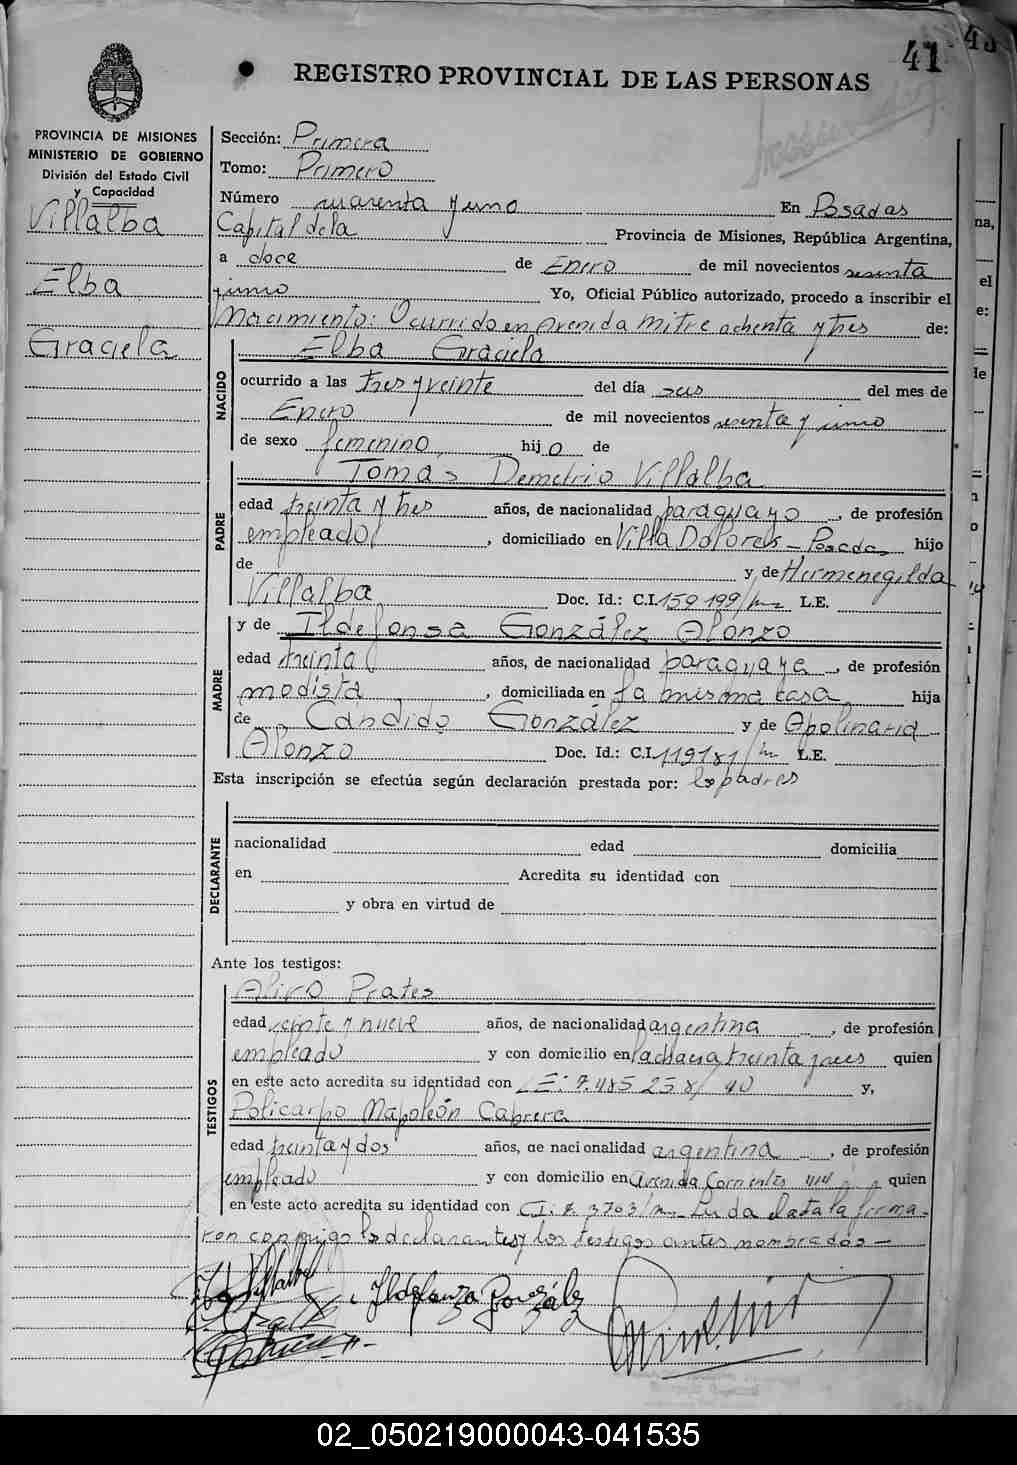 41
43
REGISTRO PROVINCIAL DE LAS PERSONAS
PROVINCIA DE MISIONES
MINISTERIO DE GOBIERNO
División del Estado Civil
y Capacidad
Villalba
Elba
Graciela
Sección: Primera
Tomo: Primero
Número cuarenta y uno En Posadas
Capital de la Provincia de Misiones, República Argentina,
a doce de Enero de mil novecientos sesenta
y uno Yo, Oficial Público autorizado, procedo a inscribir el
Nacimiento: Ocurrido en avenida Mitre ochenta y tres de:
Elba Graciela
NACIDO
ocurrido a las tres y veinte del día seis del mes de
Enero de mil novecientos sesenta y uno
de sexo femenino, hij o de
PADRE
Tomas Demetrio Villalba
edad treinta y tres años, de nacionalidad paraguayo, de profesión
empleado, domiciliado en Villa Dolores - Posadas hijo
de y de Hermenegilda
Villalba Doc. Id.: C.I. 159199/ L.E.
MADRE
y de Ildefonsa González Alonzo
edad treinta años, de nacionalidad paraguaya, de profesión
modista, domiciliada en la misma casa hija
de Candido González y de Apolinaria
Alonzo Doc. Id.: C.I. 119181/ L.E.
Esta inscripción se efectúa según declaración prestada por: los padres
DECLARANTE
nacionalidad edad domicilia
en Acredita su identidad con
y obra en virtud de
Ante los testigos:
TESTIGOS
Prates
edad veinte y nueve años, de nacionalidad argentina, de profesión
empleado y con domicilio en treinta y seis quien
en este acto acredita su identidad con LE: 7.485.258/ y,
Policarpo Napoleón Cabrera
edad treinta y dos años, de nacionalidad argentina, de profesión
empleado y con domicilio en avenida Corrientes quien
en este acto acredita su identidad con CI: Leida el acta la firma-
ron conmigo los declarantes y los testigos antes nombrados -
Villalba
Ildefonza González
na,
el
e:
le
n
o
02_050219000043-041535